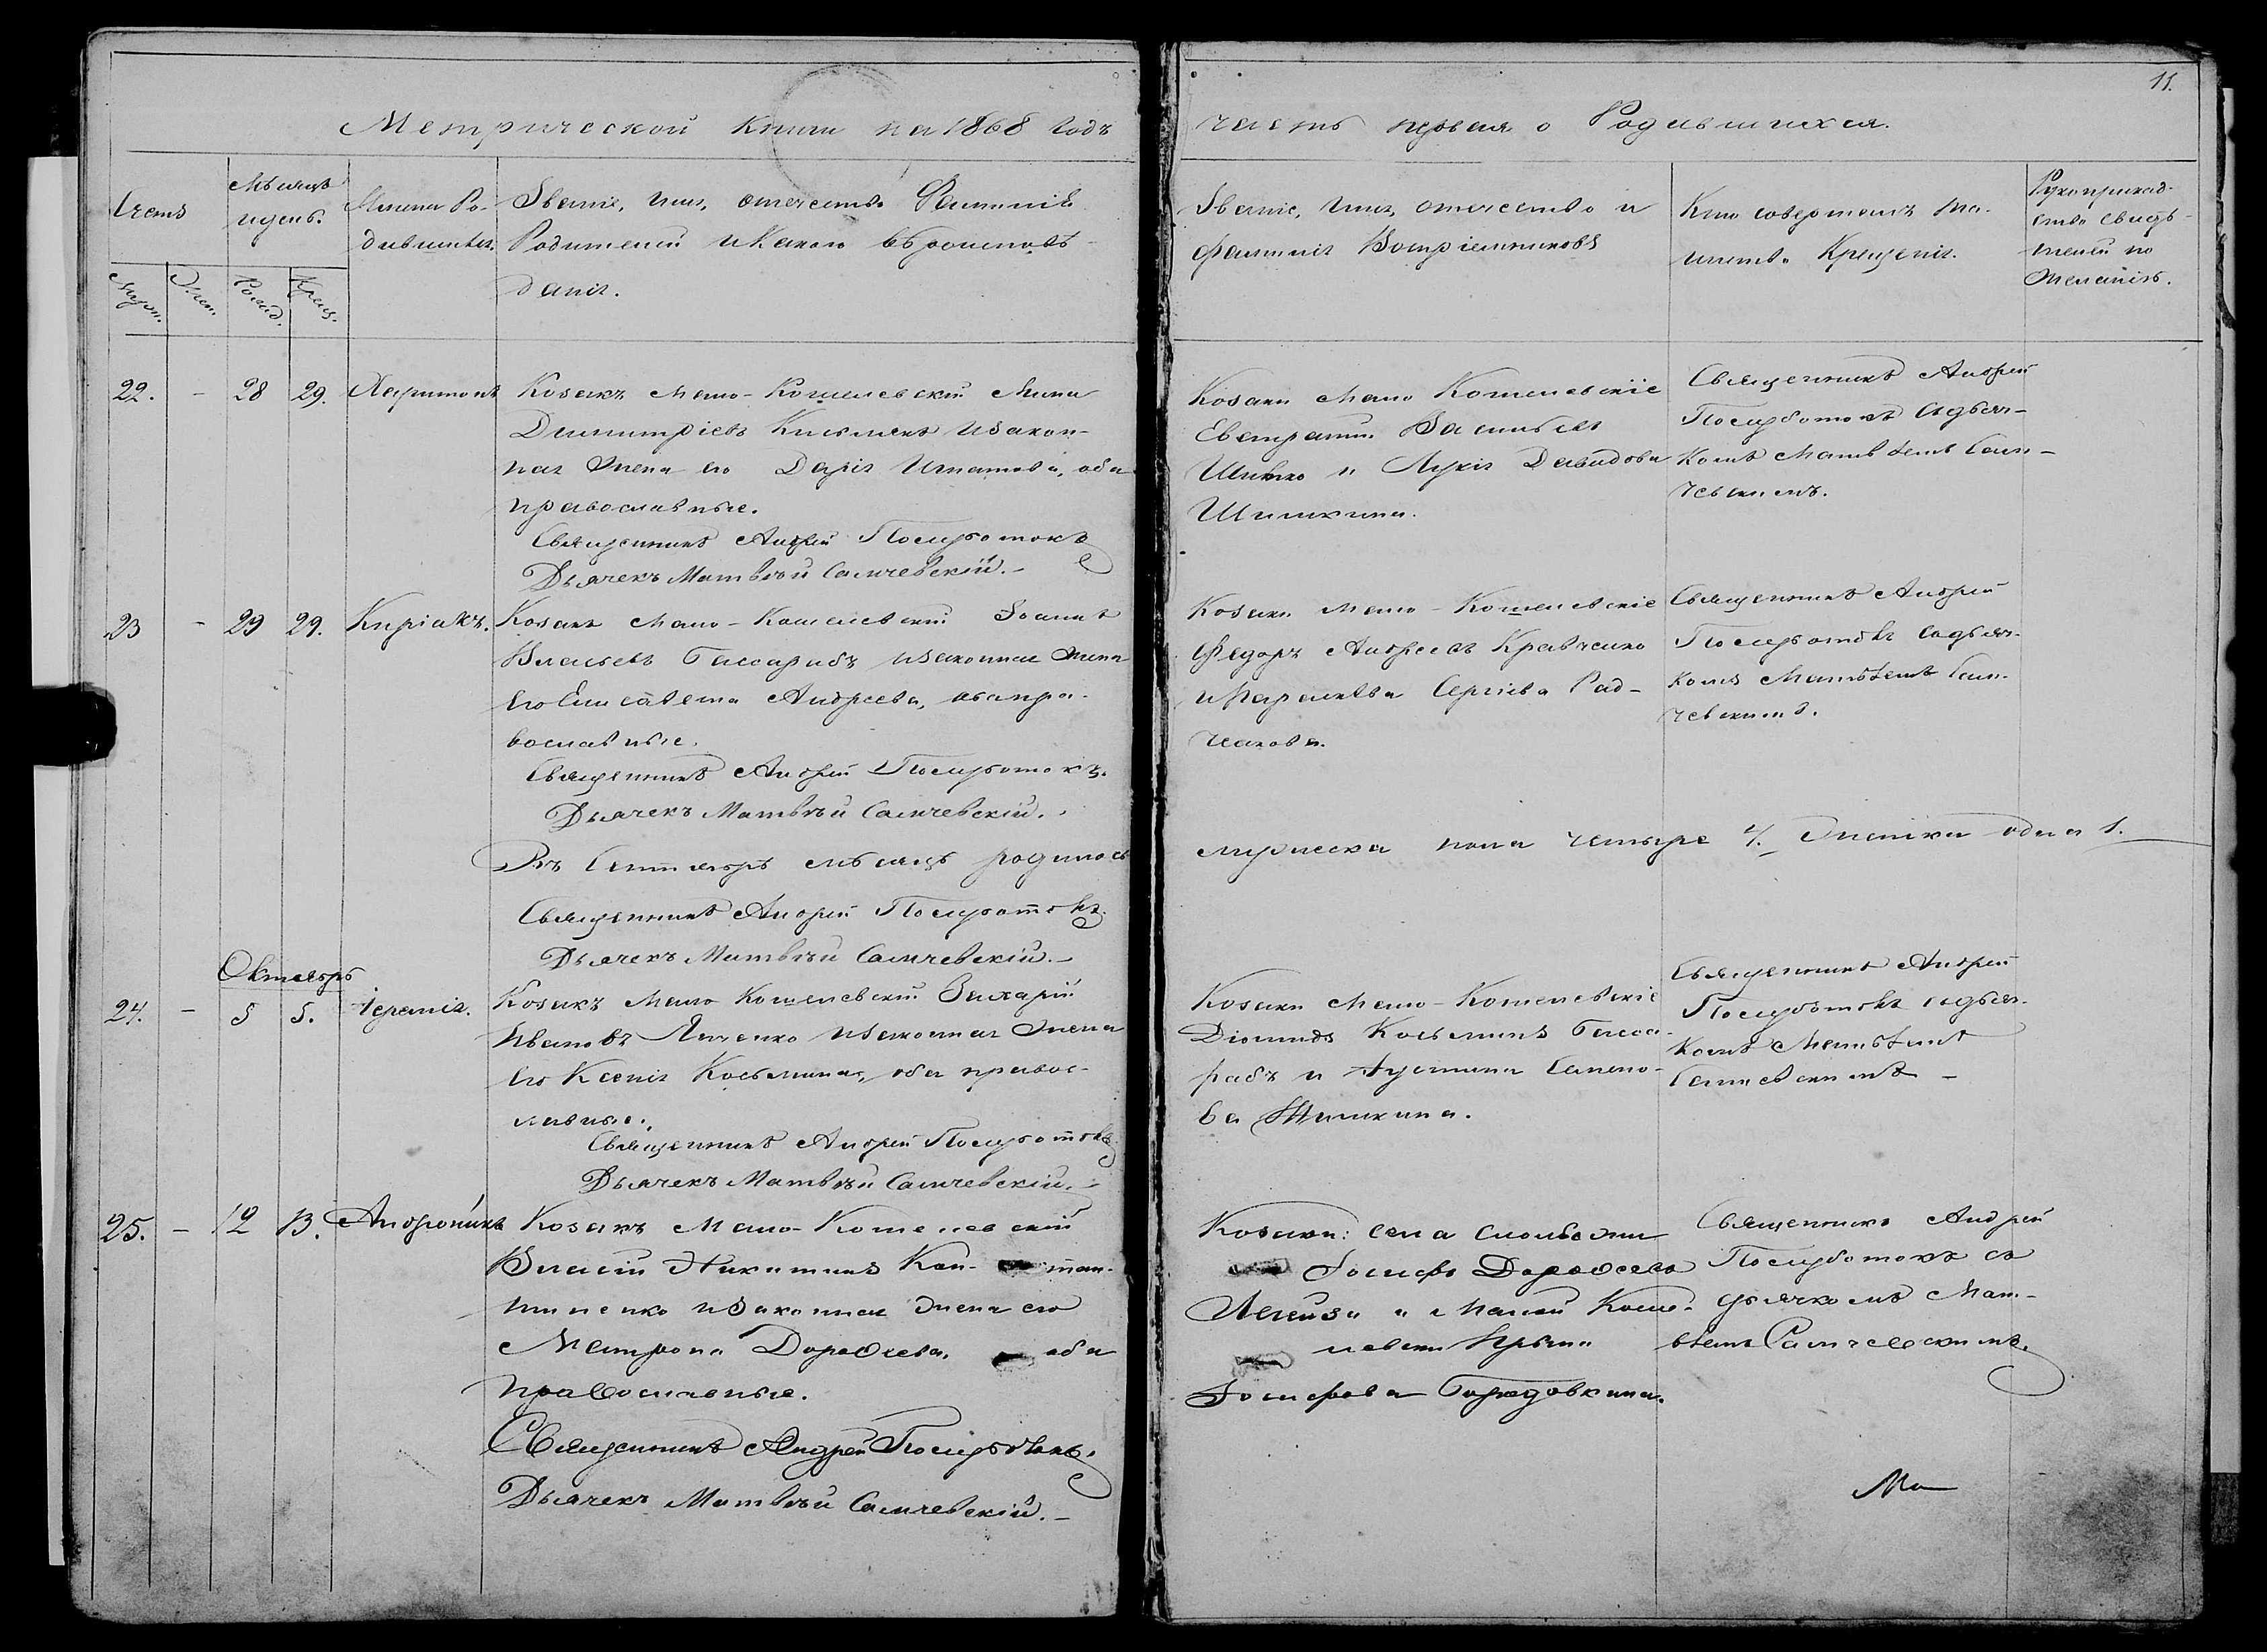 11.
Метрической книги на 1868 годъ
часть первая о Родившихся.
Счетъ
Мѣсяцъ
и день.
Муж.
Жен.
Рожд.
Крещ.
Имена Ро-
дившихся.
Званіе, имя, отчество Фамилія
Родителей и какого вѣроисповѣ-
данія.
Званіе, имя, отчество и
фамилія Воспріемниковъ
Кто совершалъ та-
инство Крещенія.
Рукоприклад-
ство свидѣ-
телей по
желанію.
22. - 28 29. Харитонъ
Козакъ Мало-Кошелевскій
Димитріевъ и закон-
ная жена его Дарія Игнатова, оба
православные.
Священникъ Андрей Полуботокъ
Дьячекъ Матвѣй Самчевскій. -
Козаки Мало Кошелевскіе
Евстратій Васильевъ
и Лукія Давидова
Шишкина.
Священникъ Андрей
Полуботокъ съ дьяч-
комъ Матвѣемъ Сам-
чевскимъ.
23 - 29 29. Киріакъ.
Козакъ Мало-Кошелевскій Іоаннъ
Власьевъ и законная жена
его Елисавета Андреева, оба пра-
вославные.
Священникъ Андрей Полуботокъ.
Дьячекъ Матвѣй Самчевскій.
Козаки Мало-Кошелевскіе
Федоръ Андреевъ Кравченко
и Параскева Сергіева Рад-
ченкова.
Священникъ Андрей
Полуботокъ съ дьяч-
комъ Матвѣемъ Сам-
чевскимъ.
Въ Сентябрѣ мѣсяцѣ родилось
мужеска пола четыре 4. Женска одна 1.
Священникъ Андрей Полуботокъ.
Дьячекъ Матвѣй Самчевскій. -
Октябрь
24. - 5 5. Іеремія.
Козакъ Мало Кошелевскій Захарій
Ивановъ и законная жена
его Ксенія Косьмина, оба правос-
лавные.
Священникъ Андрей Полуботокъ
Дьячекъ Матвѣй Самчевскій. -
Козаки Мало-Кошелевскіе
Діомидъ Косьминъ
и Іустина
ва Шишкина.
Священникъ Андрей
Полуботокъ съ дьяч-
комъ Матвѣемъ
Самчевскимъ -
25. - 12 13. Андроникъ
Козакъ Мало-Кошелевскій
Власій Никитинъ Кон- стан-
тиненко и законная жена его
Матрона Дорофеева, оба
православные.
Священникъ Андрей Полуботокъ.
Дьячекъ Матвѣй Самчевскій. -
Козаки: села
Іосифъ Дорофеевъ
и Малой Коше-
левки Ирина
Іосифова
Священникъ Андрей
Полуботокъ съ
дьячкомъ Мат-
вѣемъ Самчевскимъ.
Ма